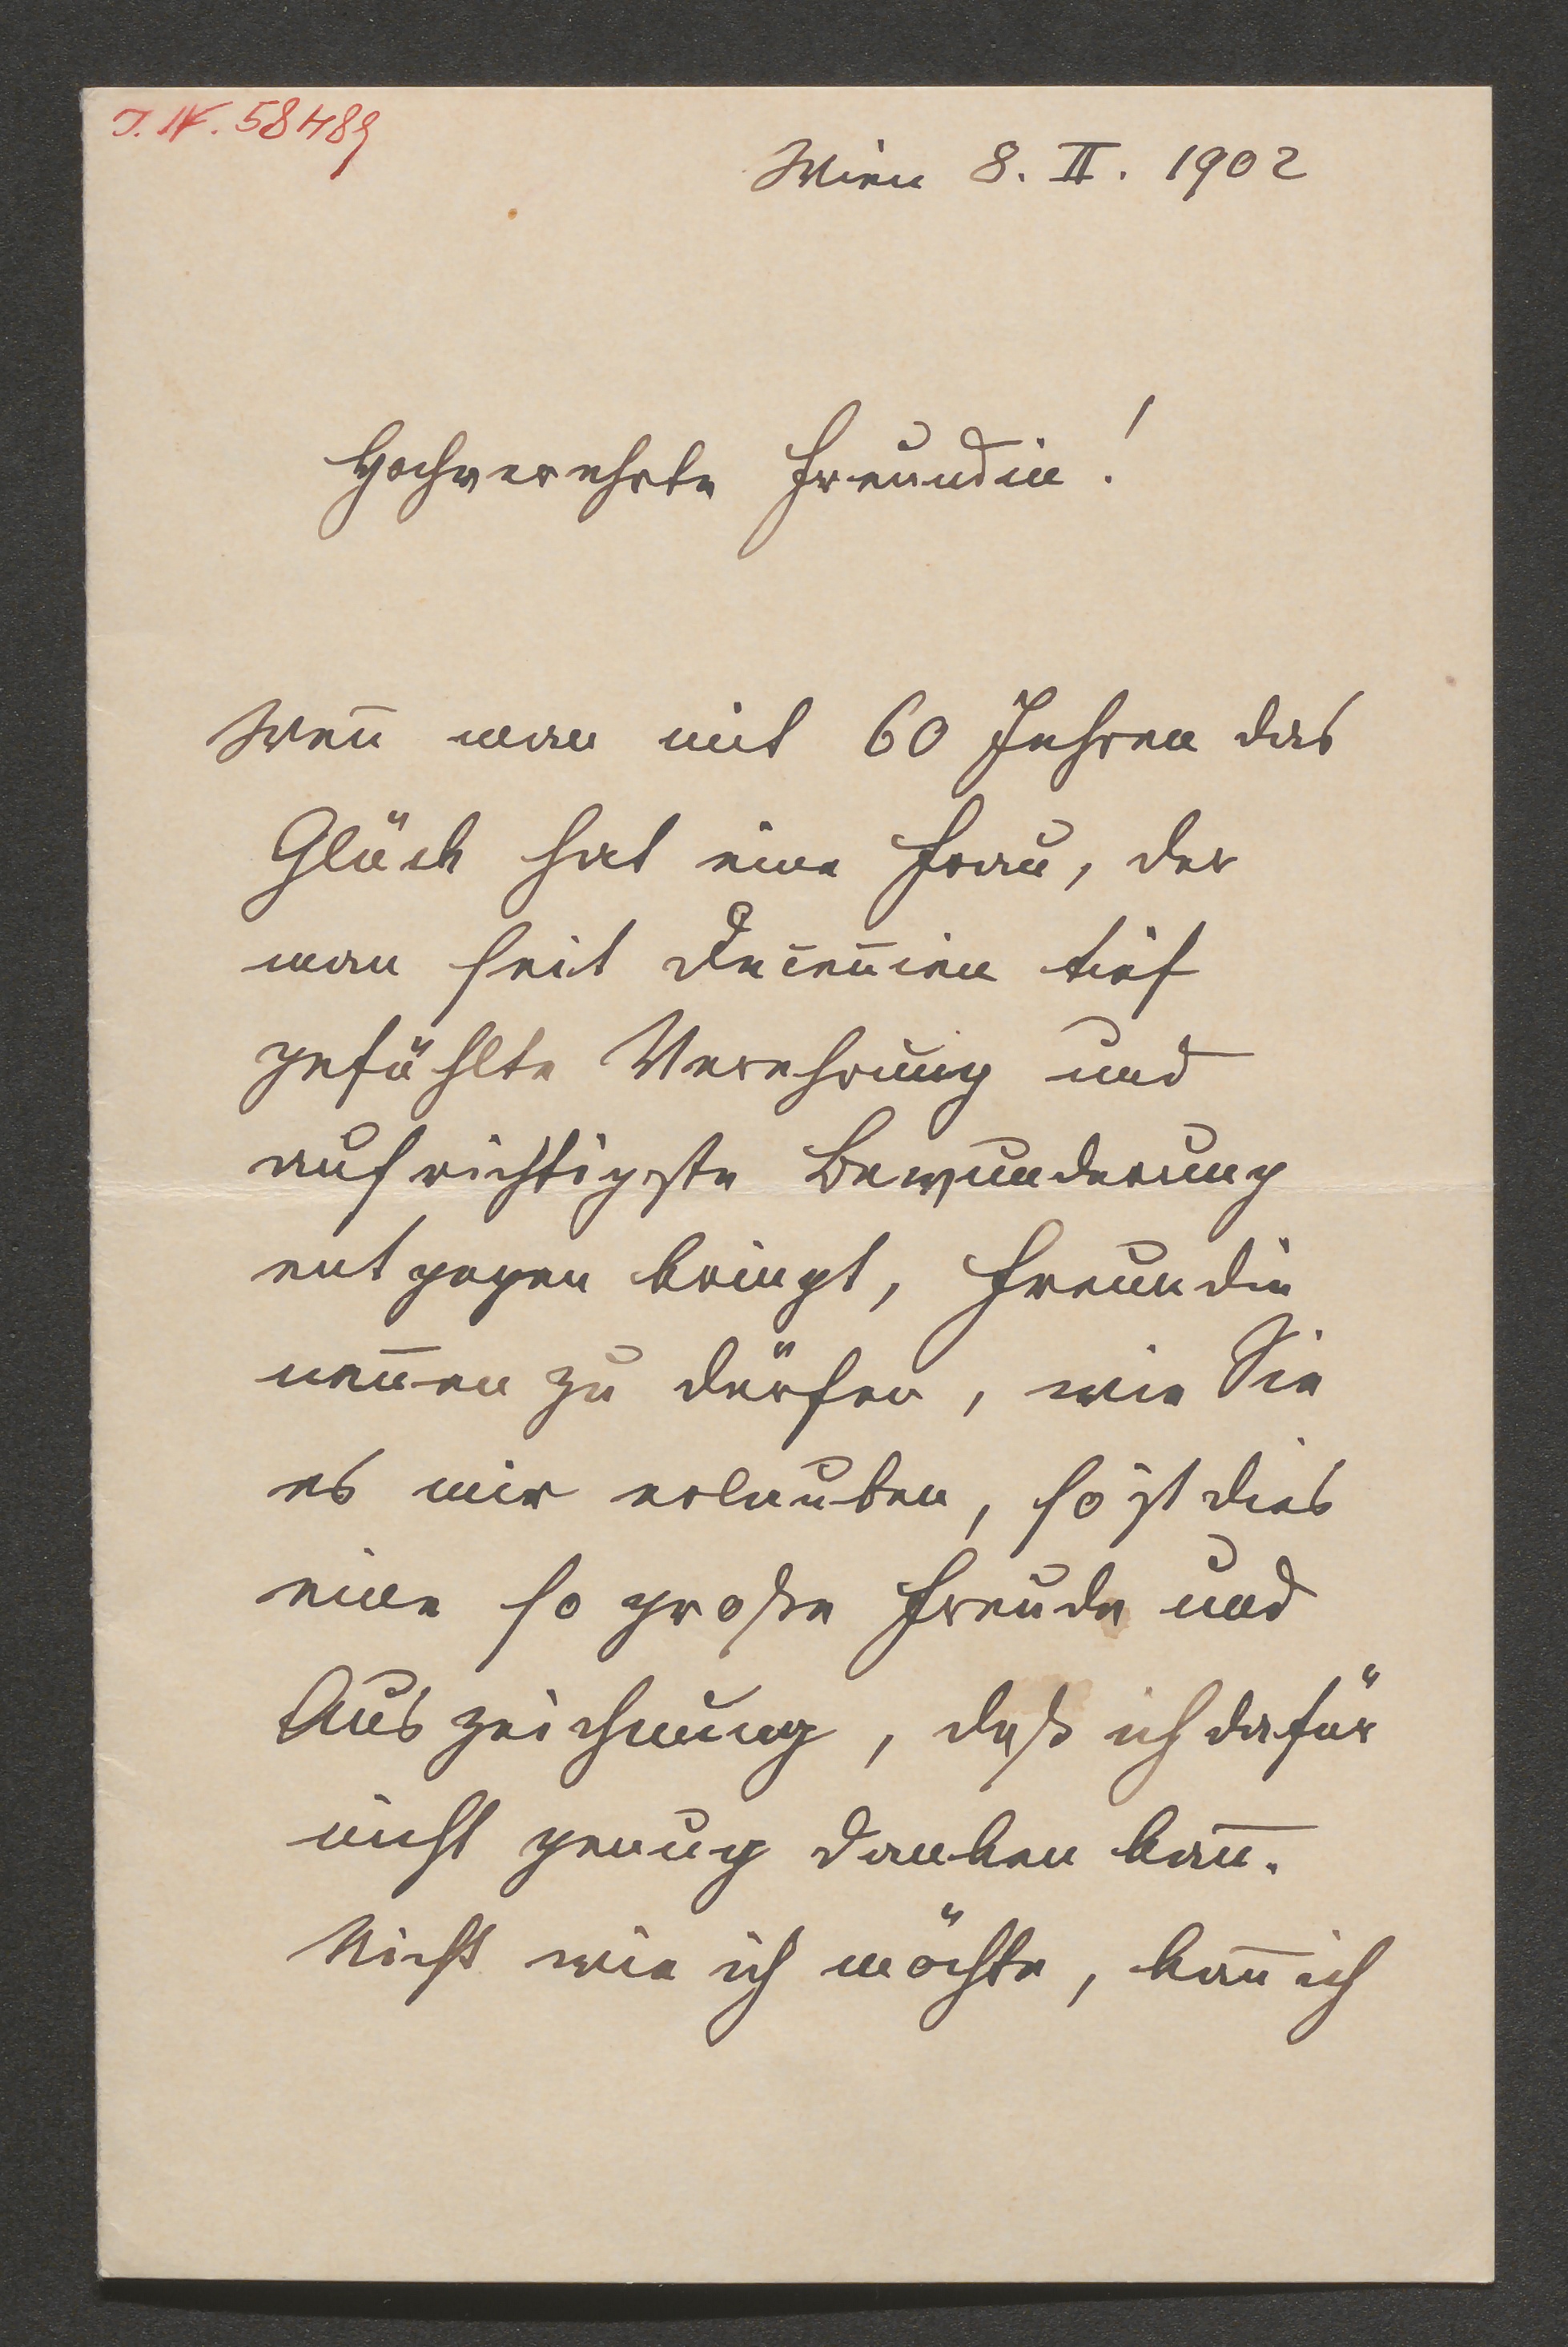 J. N. 58489
Wien 8. II. 1902
Hochverehrte Freundin!
Wen̄ man mit 60 Jahren das
Glück hat eine Frau, der
man seit Decen̄ien tief
gefühlte Verehrung und
aufrichtigste Bewunderung
entgegen bringt, Freundin
nen̄en zu dürfen, wie Sie
es mir erlauben, so ist dies
eine so große Freude und
Auszeichnung, daß ich dafür
nicht genug danken kan̄.
Nicht wie ich möchte, kan̄ ich